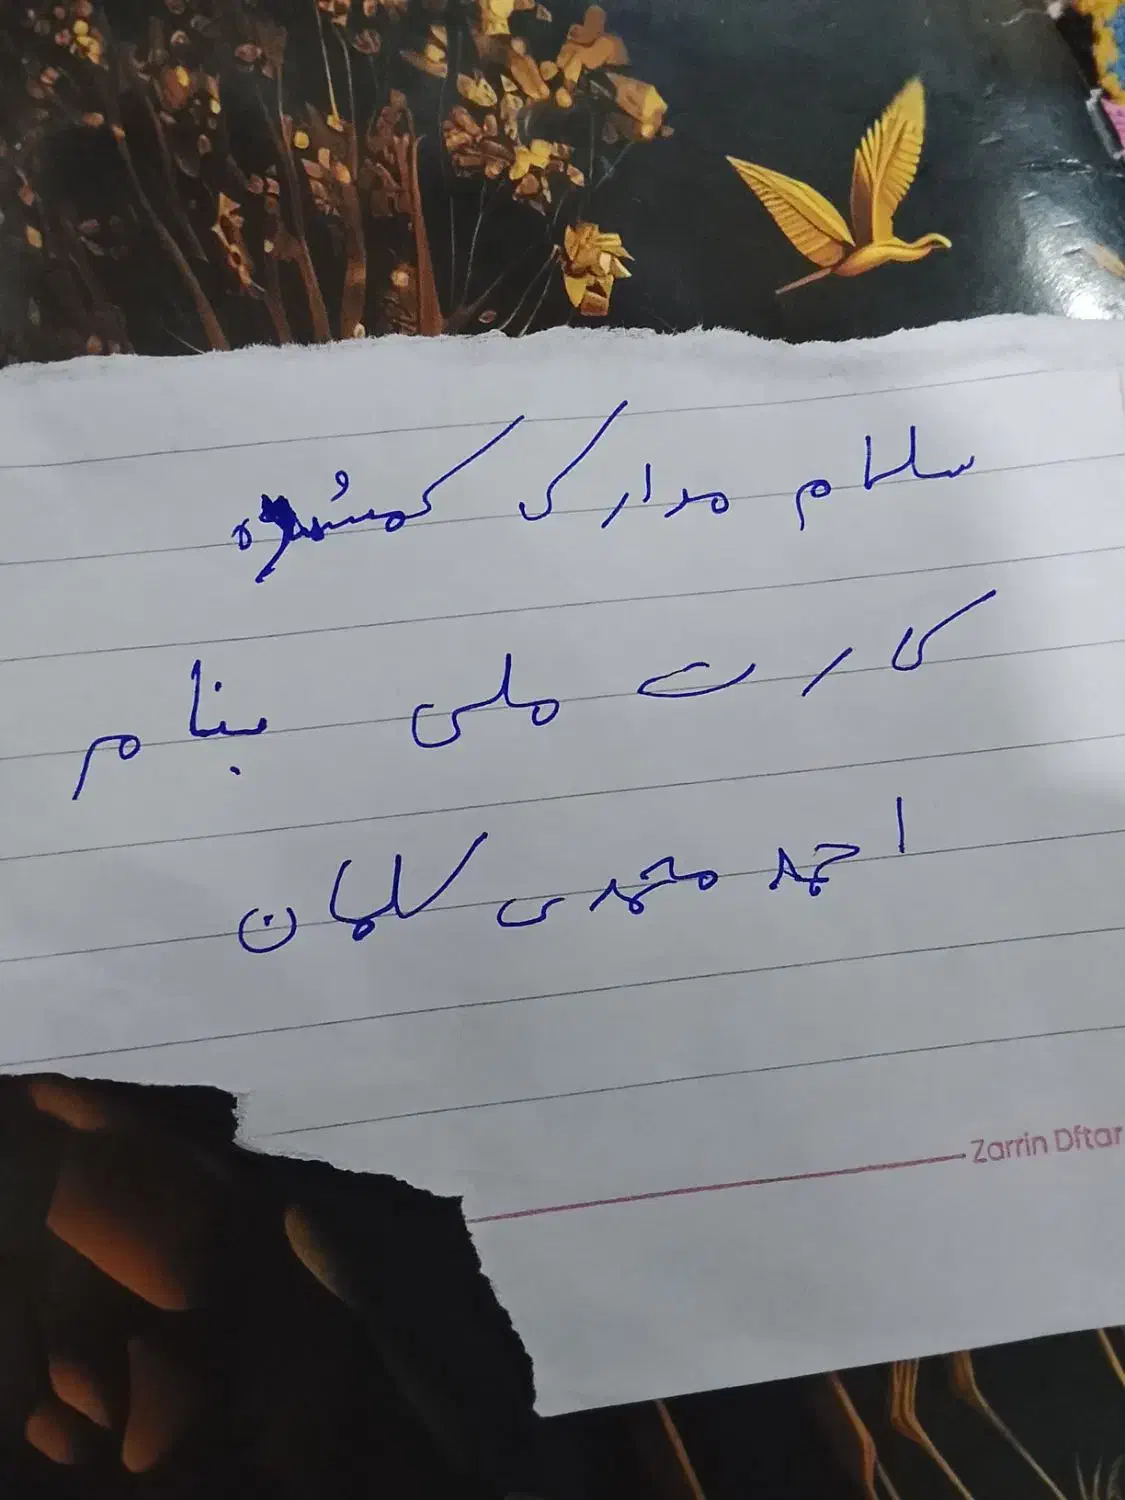 سلام مدارک گمشده
کارت ملی بنام
احمد محمدی کلمان
Zarrin Dftar